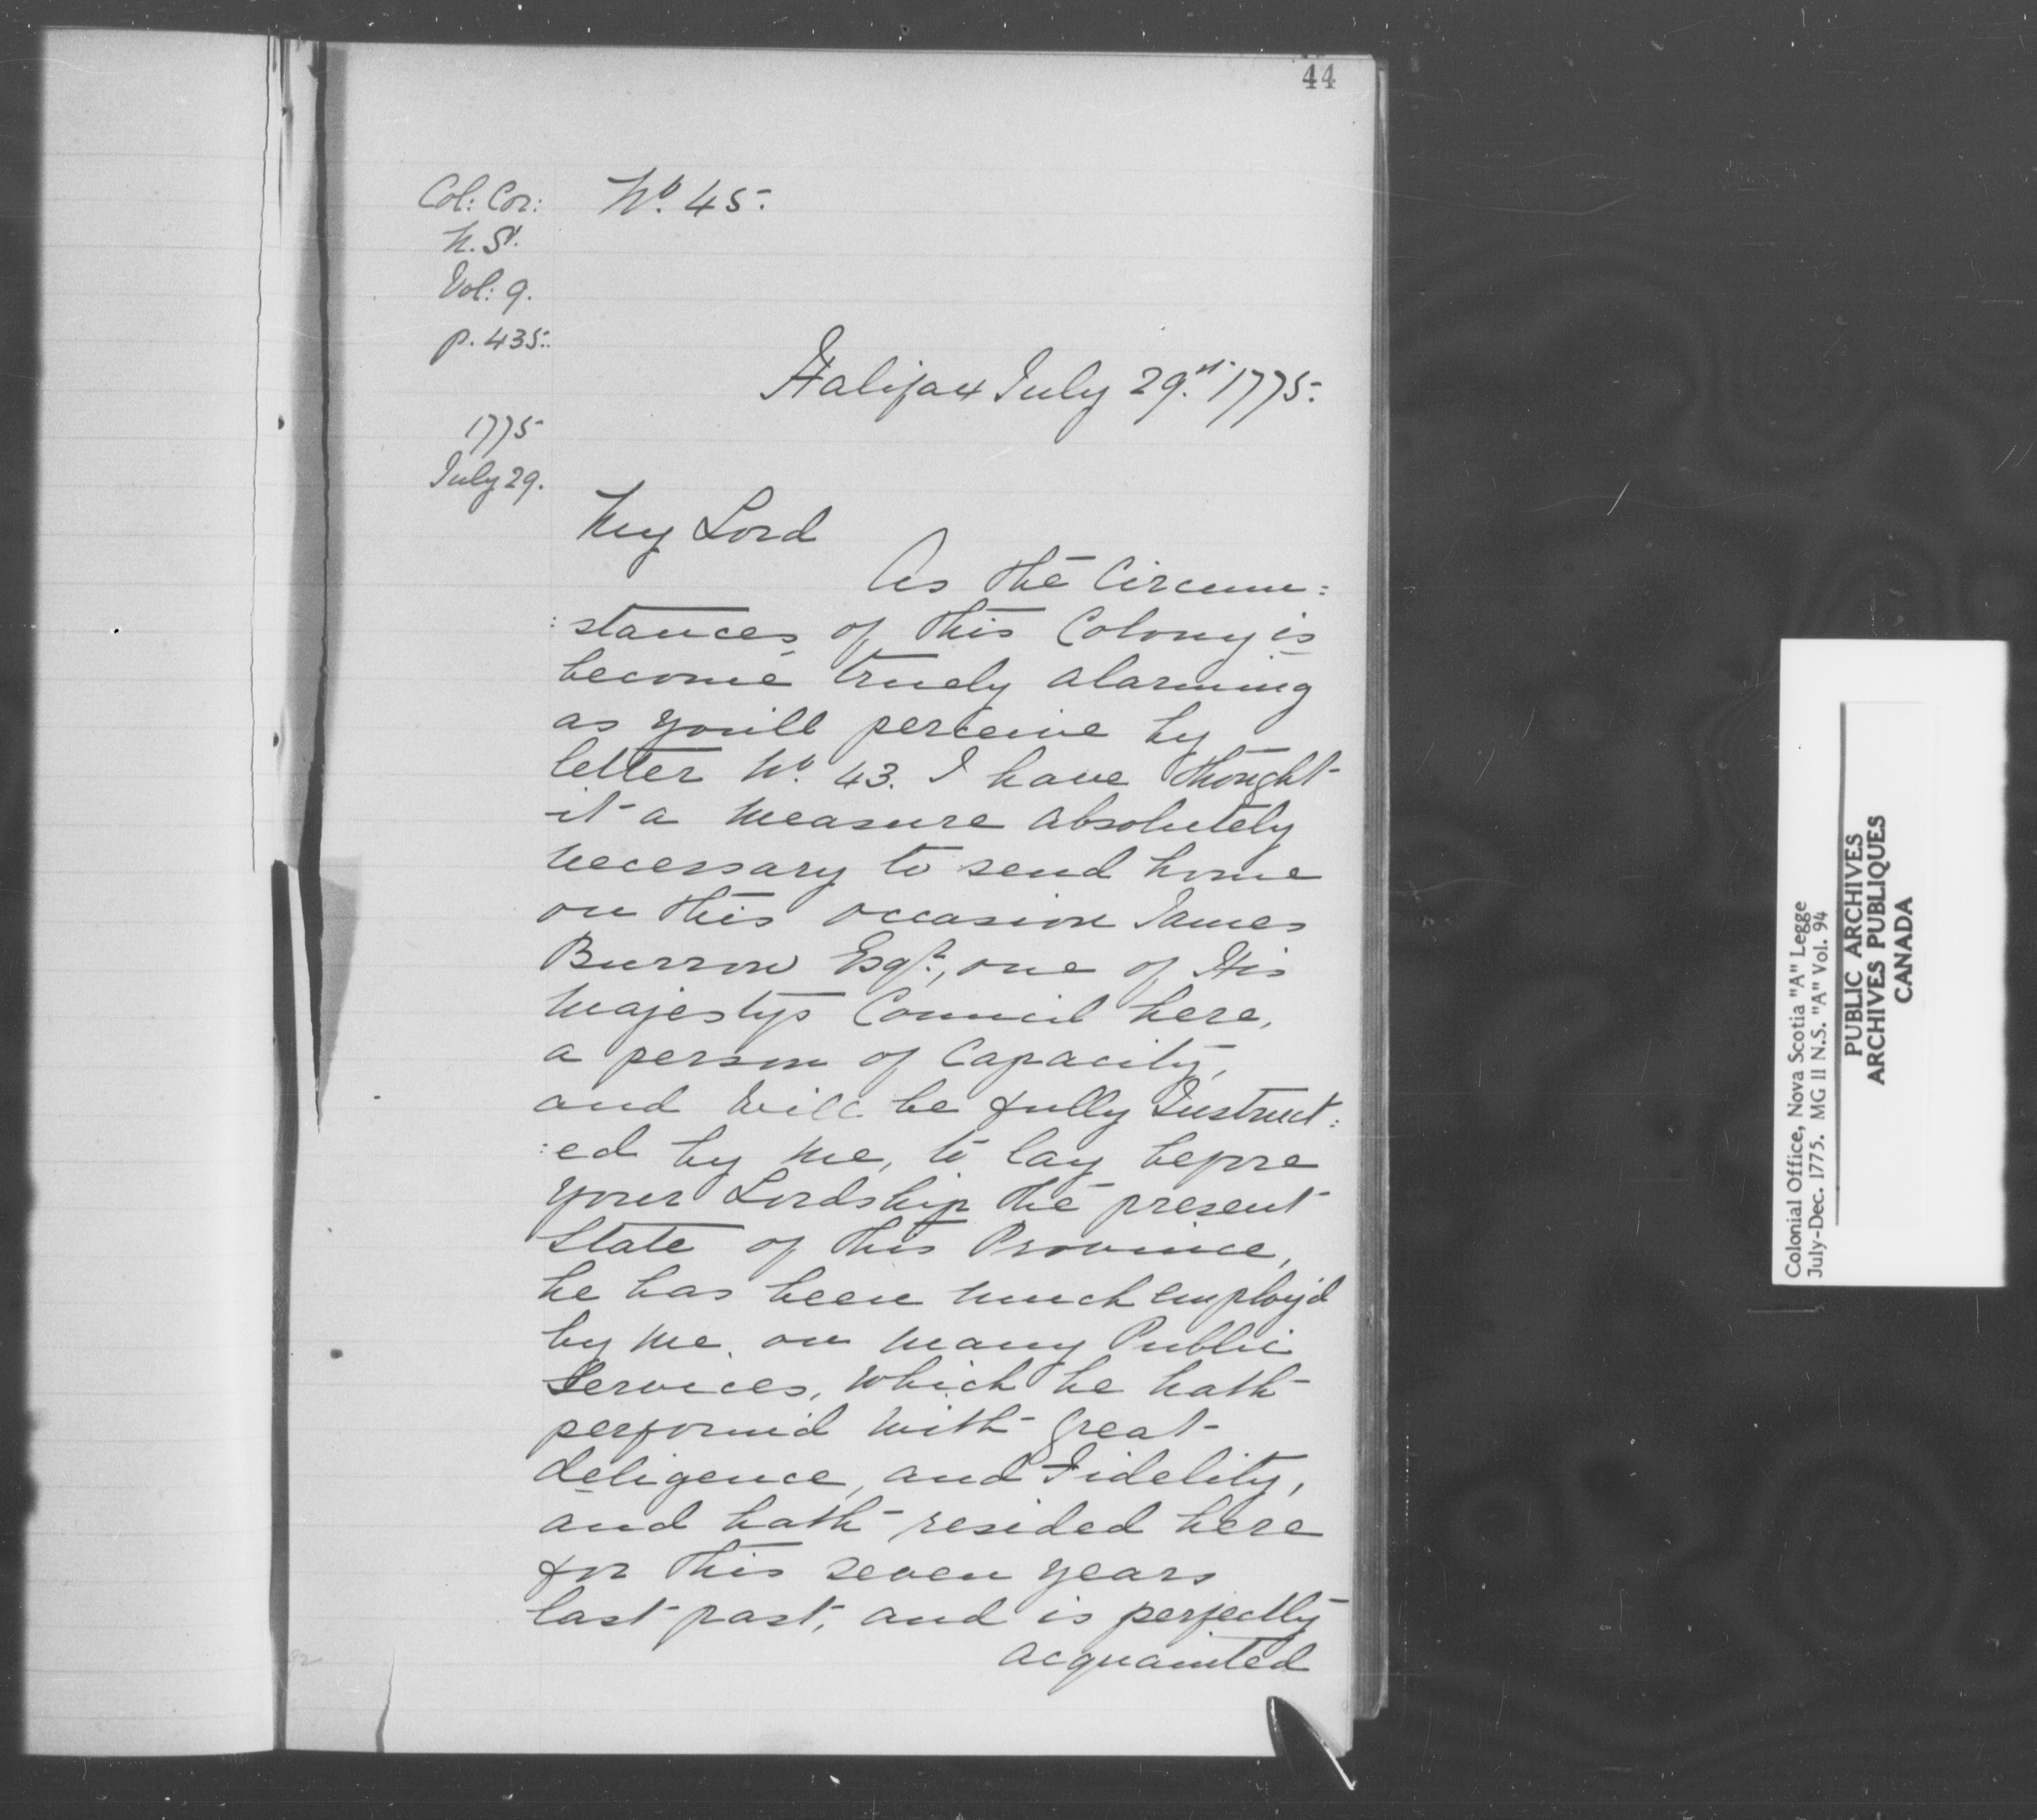 44
Col: Cor:
N. S.
Vol: 9.
p. 435.
No. 45.
Halifax July 29.st 1775.
1775
July 29.
My Lord
As the Circum=
:stances of this Colony is
become truly alarming
as you'll perceive by
letter No. 43. I have thought
it a measure absolutely
necessary to send home
on this occasion James
Burrow Esqr., one of His
Majestys Council here,
a person of Capacity,
and will be fully Instruct:
:ed by me, to lay before
your Lordship the present
State of this Province,
he has been much employ'd
by me, on many Public
Services, which he hath
perform'd with great
deligence, and Fidelity,
and hath resided here
for this seven years
last past, and is perfectly
acquainted
Colonial Office, Nova Scotia "A" Legge
July-Dec. 1775. MG 11 N.S. "A" Vol. 94
PUBLIC ARCHIVES
ARCHIVES PUBLIQUES
CANADA